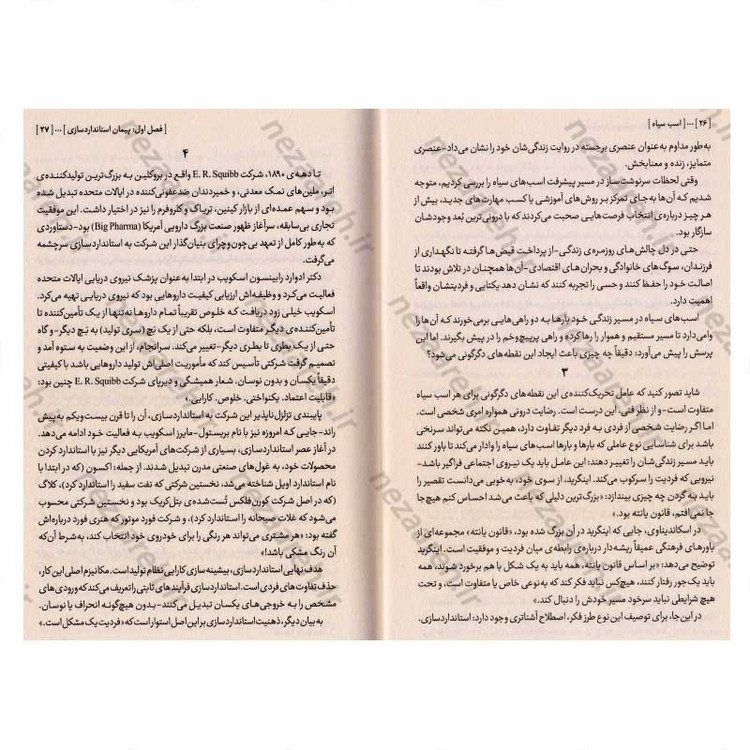 [ ۲۶ ] ... [ اسب سیاه ]
به‌طور مداوم به‌عنوان عنصری برجسته در روایت زندگی‌شان خود را نشان می‌داد-عنصری
متمایز، زنده و معنابخش.
وقتی لحظات سرنوشت‌ساز در مسیر پیشرفت اسب‌های سیاه را بررسی کردیم، متوجه
شدیم که آن‌ها به‌جای تمرکز بر روش‌های آموزشی یا کسب مهارت‌های جدید، بیش از
هر چیز درباره‌ی انتخاب فرصت‌هایی صحبت می‌کردند که با درونی‌ترین بُعد وجودشان
سازگار بود.
حتی در دل چالش‌های روزمره‌ی زندگی-از پرداخت قبض‌ها گرفته تا نگهداری از
فرزندان، سوگ‌های خانوادگی و بحران‌های اقتصادی-آن‌ها همچنان در تلاش بودند تا
اصالت خود را حفظ کنند و حسی را تجربه کنند که نشان دهد یکتایی و فردیتشان واقعاً
اهمیت دارد.
اسب‌های سیاه در مسیر زندگی خود بارها به دو راهی‌هایی برمی‌خورند که آن‌ها را
وامی‌دارد تا مسیر مستقیم و هموار را رها کرده و راهی پرپیچ‌وخم را در پیش بگیرند. اما این
پرسش را پیش می‌آورد: دقیقاً چه چیزی باعث ایجاد این نقطه‌های دگرگونی می‌شود؟
۳
شاید تصور کنید که عامل تحریک‌کننده‌ی این نقطه‌های دگرگونی برای هر اسب سیاه
متفاوت است-و از نظر فنی، این درست است. رضایت درونی همواره امری شخصی است.
اما اگر رضایت شخصی از فردی به فرد دیگر تفاوت دارد، همین نکته می‌تواند سرنخی
باشد برای شناسایی نوع عاملی که بارها و بارها اسب‌های سیاه را وادار می‌کند تا باور کنند
باید مسیر زندگی‌شان را تغییر دهند: این عامل باید یک نیروی اجتماعی فراگیر باشد-
نیرویی که فردیت را سرکوب می‌کند. اینگرید، از سوی خود، به‌خوبی می‌دانست تقصیر را
باید به گردن چه چیزی بیندازد: «بزرگ‌ترین دلیلی که باعث می‌شد احساس کنم هیچ‌جا
جا نمی‌افتم، قانون یانته بود.»
در اسکاندیناوی، جایی که اینگرید در آن بزرگ شده بود، «قانون یانته» مجموعه‌ای از
باورهای فرهنگی عمیقاً ریشه‌دار درباره‌ی رابطه‌ی میان فردیت و موفقیت است. اینگرید
توضیح می‌دهد: «بر اساس قانون یانته، همه باید به یک شکل با هم برخورد شوند، همه
باید یک‌جور رفتار کنند، هیچ‌کس نباید فکر کند که به‌نوعی خاص یا متفاوت است، و تحت
هیچ شرایطی نباید سرخود مسیر خودش را دنبال کند.»
در این‌جا، برای توصیف این نوع طرز فکر، اصطلاح آشناتری وجود دارد: استانداردسازی.
[ فصل اول: پیمان استانداردسازی ] ... [ ۲۷ ]
۴
تا دهه‌ی ۱۸۹۰، شرکت E. R. Squibb واقع در بروکلین به بزرگ‌ترین تولیدکننده‌ی
اتر، ملین‌های نمک معدنی، و خمیردندان ضدعفونی‌کننده در ایالات متحده تبدیل شده
بود و سهم عمده‌ای از بازار کینین، تریاک و کلروفرم را نیز در اختیار داشت. این موفقیت
تجاری بی‌سابقه، سرآغاز ظهور صنعت بزرگ دارویی آمریکا (Big Pharma) بود-دستاوردی
که به‌طور کامل از تعهد بی‌چون‌وچرای بنیان‌گذار این شرکت به استانداردسازی سرچشمه
می‌گرفت.
دکتر ادوارد رابینسون اسکویب در ابتدا به‌عنوان پزشک نیروی دریایی ایالات متحده
فعالیت می‌کرد و وظیفه‌اش ارزیابی کیفیت داروهایی بود که نیروی دریایی تهیه می‌کرد.
اسکویب خیلی زود دریافت که خلوص تقریباً تمام داروها نه‌تنها از یک تأمین‌کننده تا
تأمین‌کننده‌ی دیگر متفاوت است، بلکه حتی از یک بَچ (سری تولید) به بَچ دیگر-و گاه
حتی از یک بطری تا بطری دیگر-تغییر می‌کند. سرانجام، از این وضعیت به ستوه آمد و
تصمیم گرفت شرکتی تأسیس کند که مأموریت اصلی‌اش تولید داروهایی باشد با کیفیتی
دقیقاً یکسان و بدون نوسان. شعار همیشگی و دیرپای شرکت E. R. Squibb چنین بود:
«قابلیت اعتماد. یکنواختی. خلوص. کارایی.»
پایبندی تزلزل‌ناپذیر این شرکت به استانداردسازی، آن را تا قرن بیست‌ویکم به‌پیش
راند-جایی که امروزه نیز با نام بریستول-مایرز اسکویب به فعالیت خود ادامه می‌دهد.
در آغاز عصر استانداردسازی، بسیاری از شرکت‌های آمریکایی دیگر نیز با استاندارد کردن
محصولات خود، به غول‌های صنعتی مدرن تبدیل شدند. از جمله: اکسون (که در ابتدا با
نام استاندارد اویل شناخته می‌شد، نخستین شرکتی که نفت سفید را استاندارد کرد)، کلاگ
(که در اصل شرکت کورن‌فلکس تُست‌شده‌ی بتل‌کریک بود و نخستین شرکتی محسوب
می‌شود که غلات صبحانه را استاندارد کرد)، و شرکت فورد موتور که هنری فورد درباره‌اش
گفته بود: «هر مشتری می‌تواند هر رنگی را برای خودروی خود انتخاب کند، به‌شرط آن‌که
آن رنگ مشکی باشد!»
هدف نهایی استانداردسازی، بیشینه‌سازی کارایی نظام تولید است. مکانیزم اصلی این کار،
حذف تفاوت‌های فردی است. استانداردسازی فرآیندهای ثابتی را تعریف می‌کند که ورودی‌های
مشخص را به خروجی‌های یکسان تبدیل می‌کنند-بدون هیچ‌گونه انحراف یا نوسان.
به بیان دیگر، ذهنیت استانداردسازی بر این اصل استوار است که «فردیت یک مشکل است.»
nezareh.ir